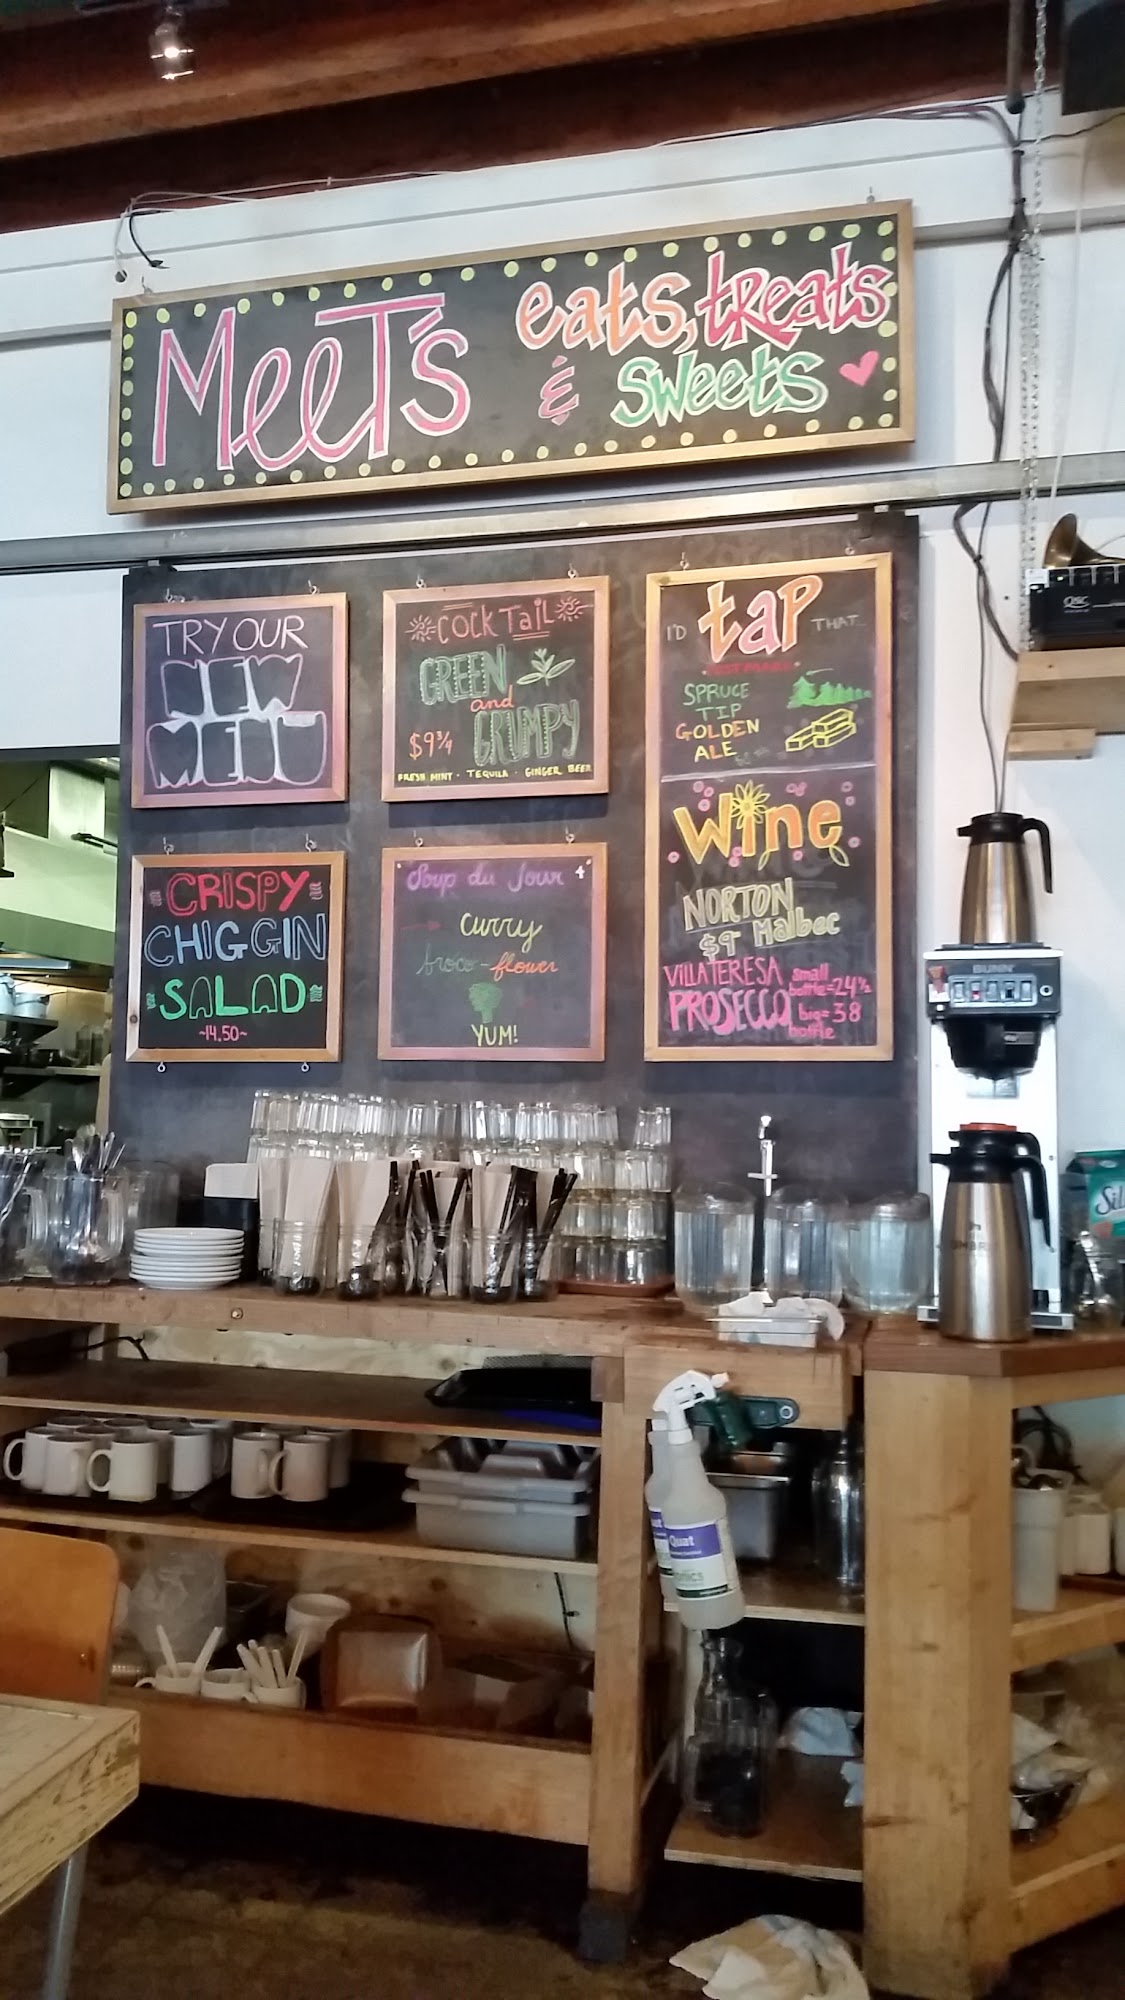 MeeT's
eats, treats
& sweets
TRY OUR
NEW
MENU
COCKTAIL
GREEN
and
GRUMPY
$9 3/4
FRESH MINT · TEQUILA · GINGER BEER
I'D tap THAT...
SPRUCE
TIP
GOLDEN
ALE
Wine
NORTON
$9 Malbec
VILLA TERESA
PROSECCO
small
bottle = 24 1/2
big = 38
bottle
CRISPY
CHIGGIN
SALAD
~14.50~
Soup du Jour 4
curry
broco-flower
YUM!
QSC
BUNN
Quat